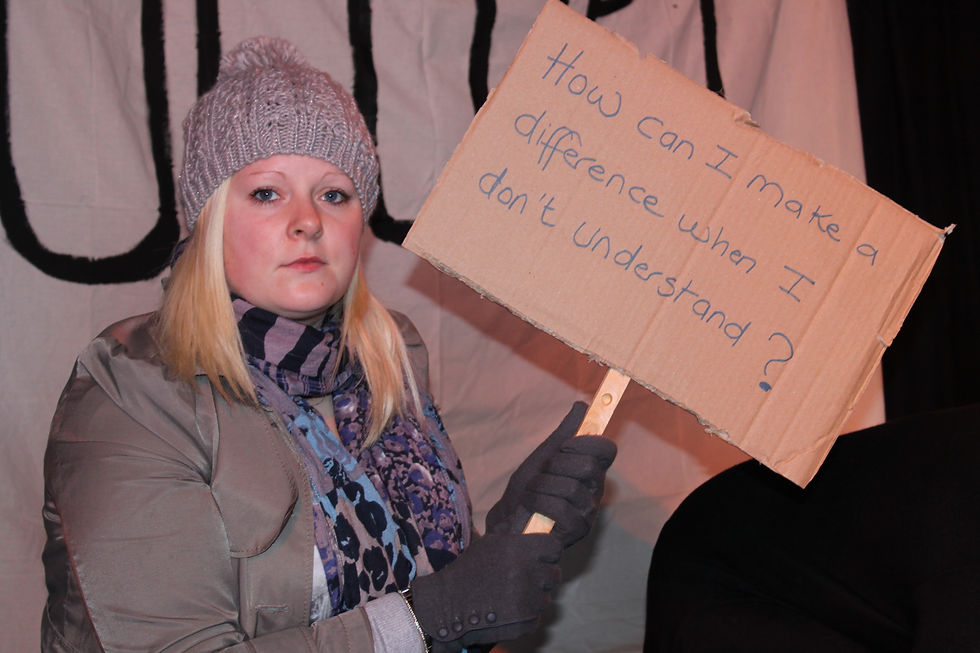 How can I make a
difference when I
don't understand?